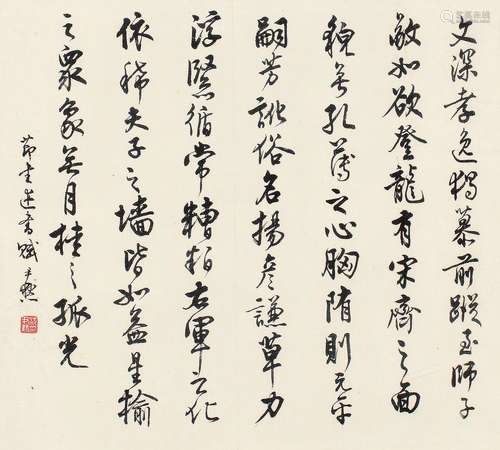 文深孝逸獨慕前蹤至師子
敬如欲登龍有宋齊之面
貌無孔薄之心胸隋則元平
嗣芳訛俗名揚彥謙草力
浮緊循常糟粕右軍之化
依稀夫子之墻皆如益星榆
之眾象無月桂之孤光
節書述書賦尹默